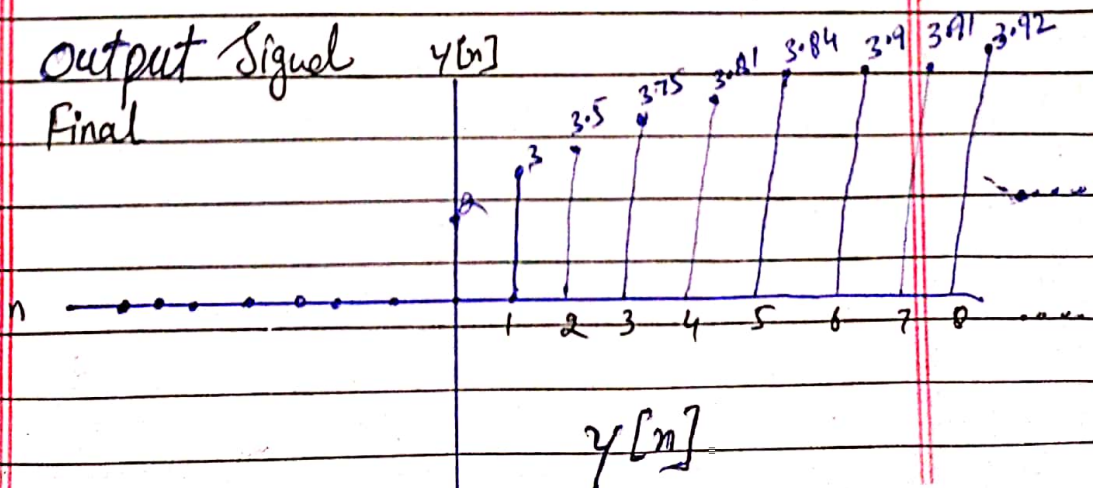 Output Signal y[n]
Final
2 3 3.5 3.75 3.81 3.84 3.9 3.91 3.92
n
1 2 3 4 5 6 7 8
y[n]